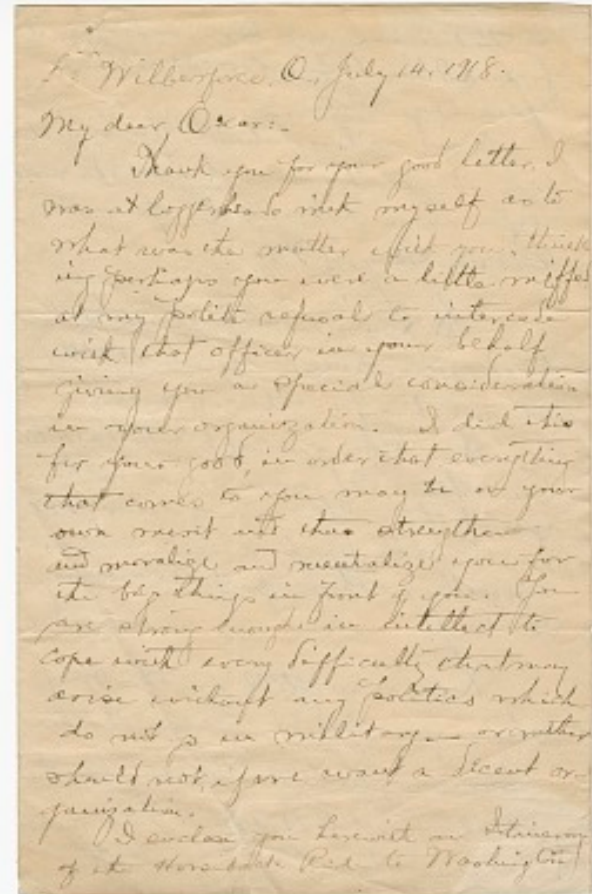 Wilberforce, O., July 14. 1918.
My dear Oscar:-
Thank you for your good letter. I
was at loggerheads with myself as to
what was the matter with you, think
ing perhaps you were a little miffed
at my polite refusal to intercede
with that officer in your behalf
giving you a special consideration
in your organization. I did this
for your good, in order that everything
that comes to you may be on your
own merit and thus strengthen
and moralize and mentalize you for
the big things in front of you. You
are strong enough in intellect to
cope with every difficulty that may
arise without any politics which
do not go in military — or rather
should not, if we want a decent or-
ganization.
I enclose you herewith an Itinerary
of the Horseback Ride to Washington